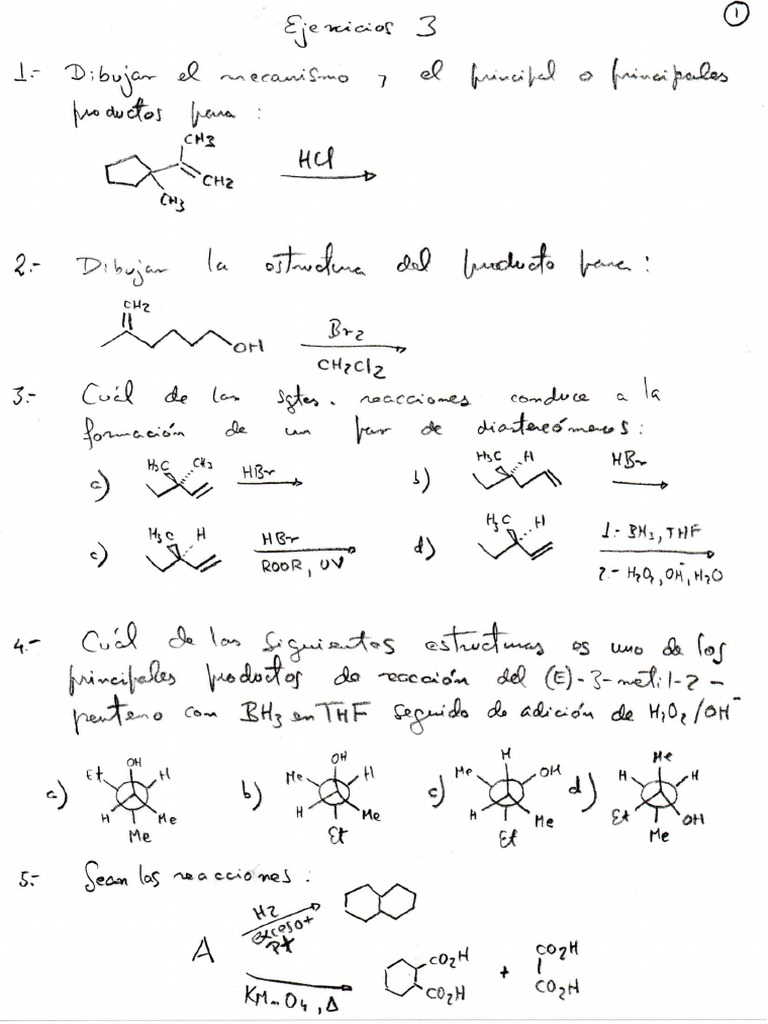 1
Ejercicios 3
1.- Dibujar el mecanismo y el principal o principales
productos para :
CH3
HCl
CH2
CH3
2.- Dibujar la estructura del producto para :
CH2
OH
Br2
CH2Cl2
3.- Cuál de las sgtes. reacciones conduce a la
formación de un par de diastereómeros :
a) H3C CH3 HBr
b) H3C H HBr
c) H3C H HBr
ROOR, UV
d) H3C H 1.- BH3, THF
2.- H2O2, OH-, H2O
4.- Cuál de las siguientes estructuras es uno de los
principales productos de reacción del (E)-3-metil-2-
penteno con BH3 en THF seguido de adición de H2O2/OH-
a) OH Et H H Me Me
b) OH Me H H Me Et
c) H Me OH H Me Et
d) Me H H Et OH Me
5.- Sean las reacciones :
H2
exceso +
Pt
A
KMnO4, Δ
CO2H
CO2H
+
CO2H
CO2H